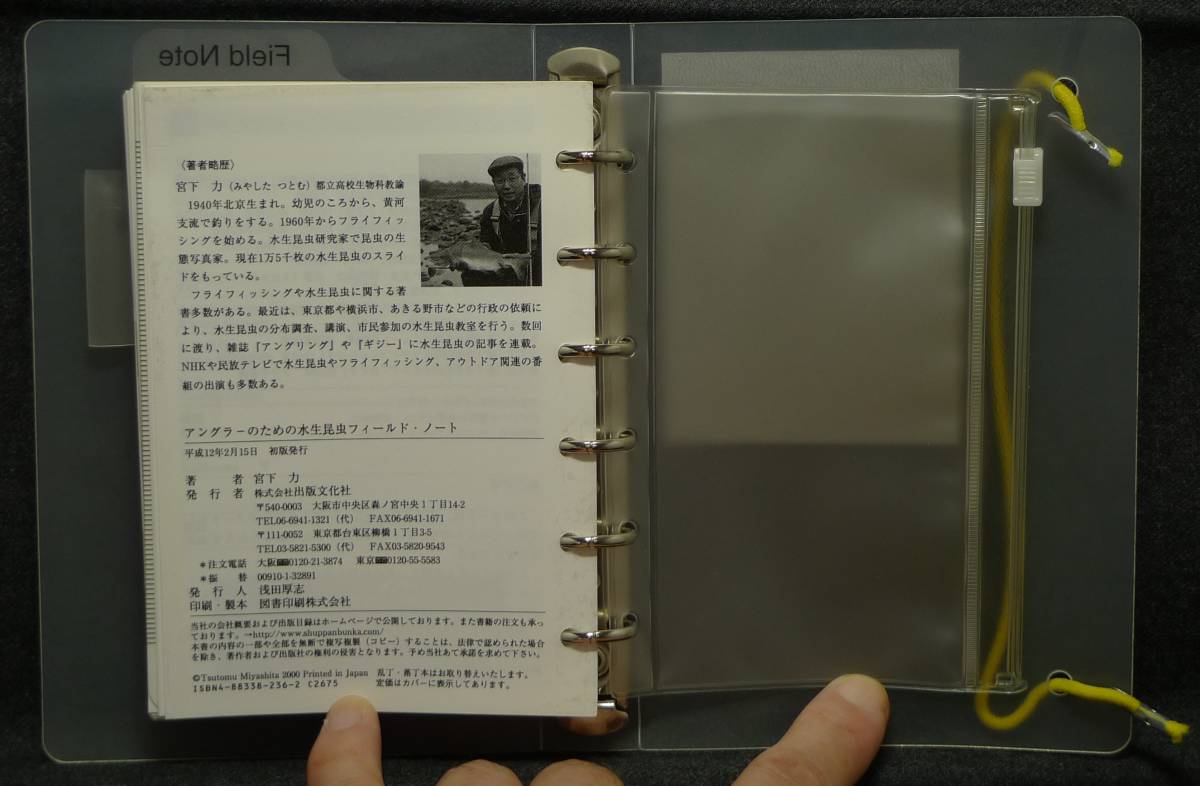 Field Note
〈著者略歴〉
宮下　力（みやした つとむ）都立高校生物科教諭
1940年北京生まれ。幼児のころから、黄河
支流で釣りをする。1960年からフライフィッ
シングを始める。水生昆虫研究家で昆虫の生
態写真家。現在1万5千枚の水生昆虫のスライ
ドをもっている。
フライフィッシングや水生昆虫に関する著
書多数がある。最近は、東京都や横浜市、あきる野市などの行政の依頼に
より、水生昆虫の分布調査、講演、市民参加の水生昆虫教室を行う。数回
に渡り、雑誌『アングリング』や『ギジー』に水生昆虫の記事を連載。
NHKや民放テレビで水生昆虫やフライフィッシング、アウトドア関連の番
組の出演も多数ある。
アングラーのための水生昆虫フィールド・ノート
平成12年2月15日　初版発行
著　　者　宮下　力
発　行　者　株式会社出版文化社
〒540-0003　大阪市中央区森ノ宮中央1丁目14-2
TEL06-6941-1321（代）　FAX06-6941-1671
〒111-0052　東京都台東区柳橋1丁目3-5
TEL03-5821-5300（代）　FAX03-5820-9543
＊注文電話　大阪0120-21-3874　東京0120-55-5583
＊振　　替　00910-1-32891
発　行　人　浅田厚志
印刷・製本　図書印刷株式会社
当社の会社概要および出版目録はホームページで公開しております。また書籍の注文も承っ
ております。→http://www.shuppanbunka.com/
本書の内容の一部や全部を無断で複写複製（コピー）することは、法律で認められた場合
を除き、著作者および出版社の権利の侵害となります。予め当社あて承諾を求めて下さい。
©Tsutomu Miyashita 2000 Printed in Japan　乱丁・落丁本はお取り替えいたします。
ISBN4-88338-236-2 C2675　定価はカバーに表示してあります。